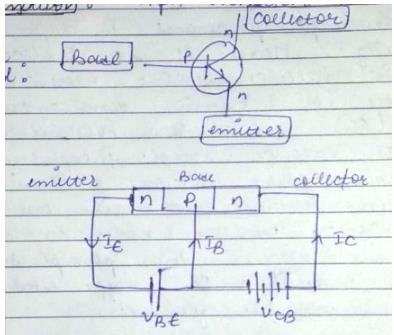 Collector
n
Base P
n
emitter
emitter Base collector
n P n
IE IB IC
VBE VCB